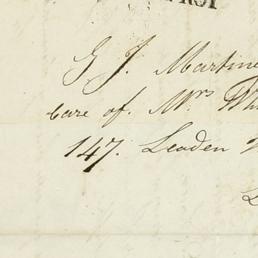 G J. Martine
care of. Mrs Wh
147. Leaden